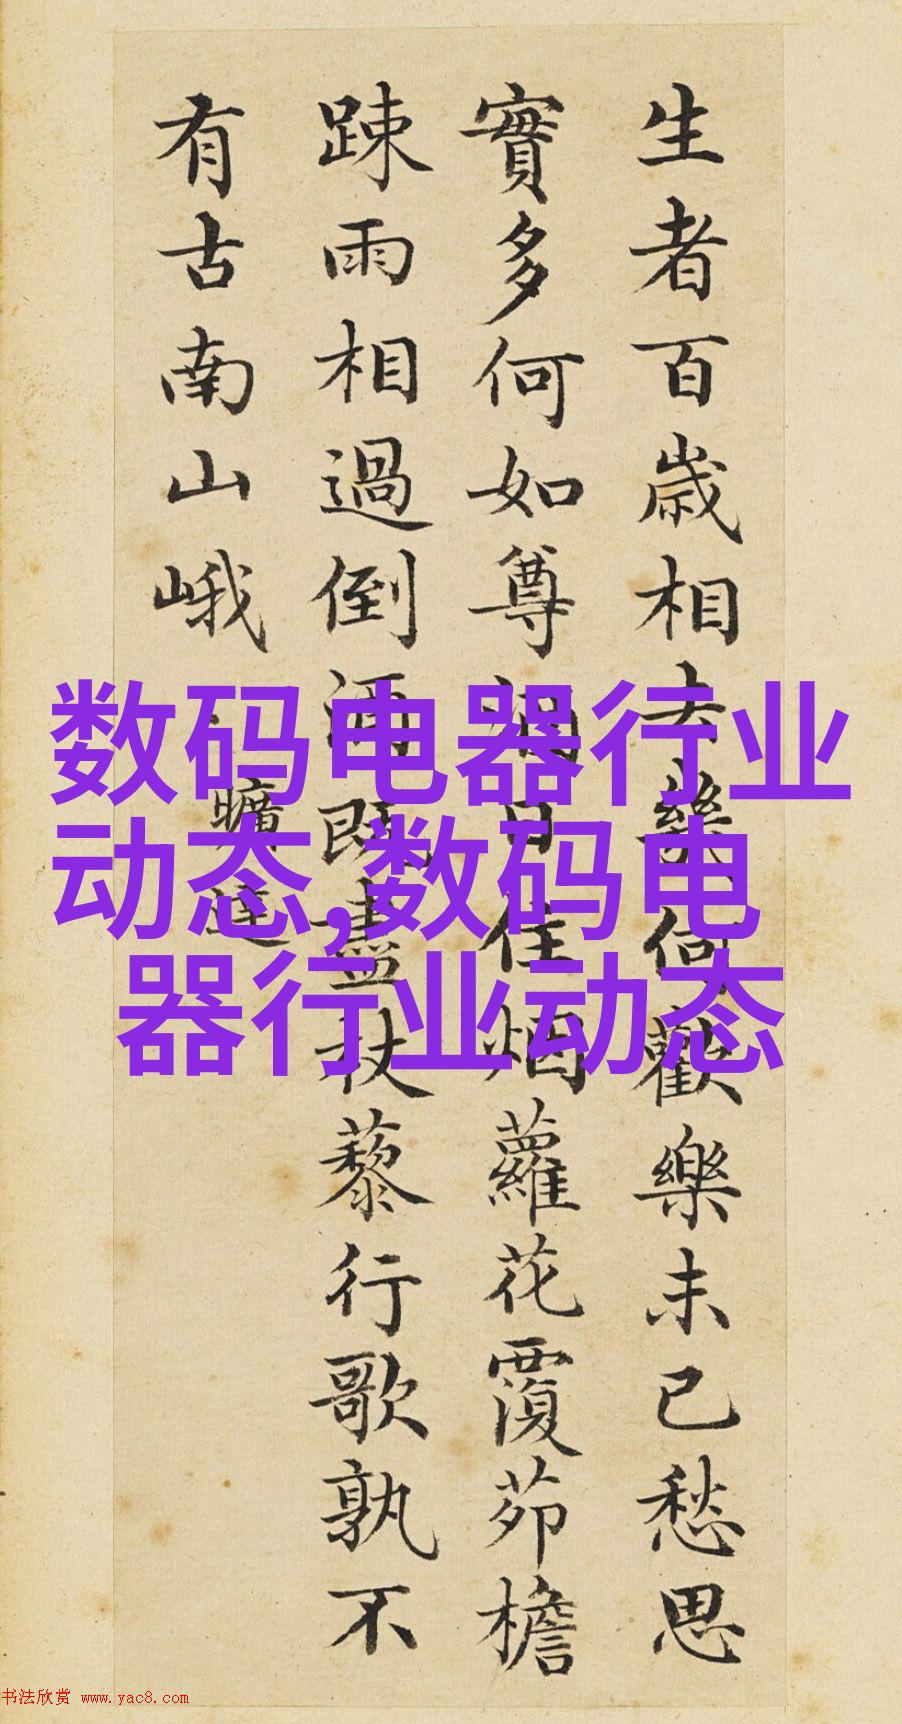 生者百歲相去幾何歡樂未已愁思
實多何如尊酒日住烟蘿花覆茆檐
踈雨相過倒酒既盡杖藜行歌孰不
有古南山峨
曠達
数码电器行业
动态,数码电
器行业动态
书法欣赏 www.yac8.com